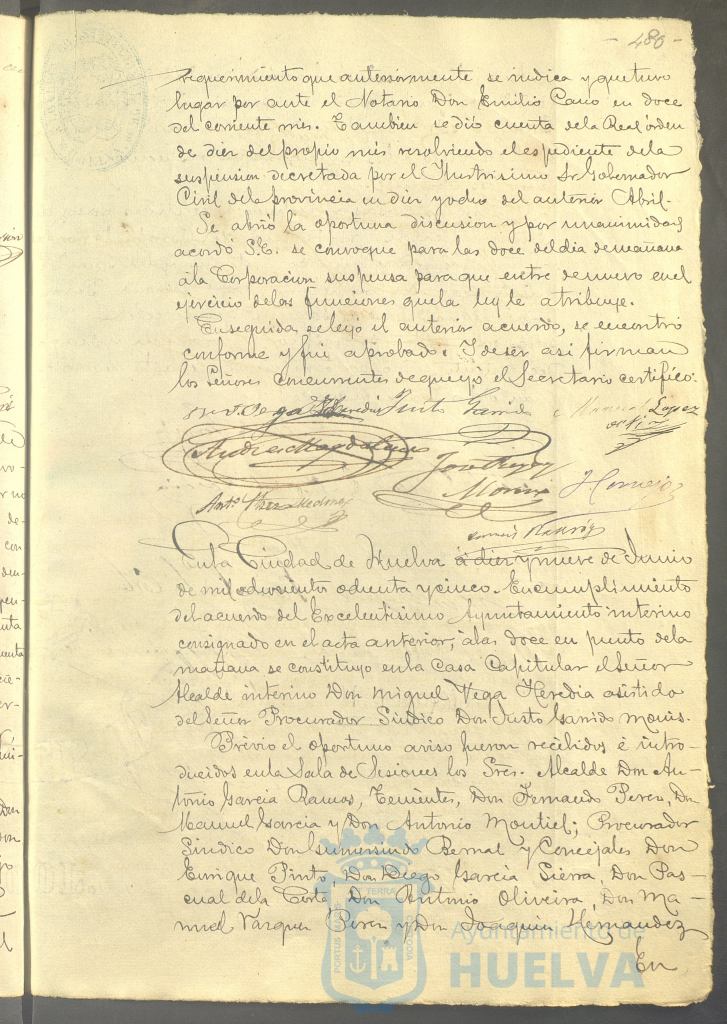 - 480 -
requerimiento que anteriormente se indica y que tuvo
lugar por ante el Notario Don Emilio Cano en doce
del corriente mes. Tambien se dió cuenta de la Real órden
de diez del propio mes resolviendo el espediente de la
suspension decretada por el Ilustrisimo Sr Gobernador
Civil de la provincia en diez y ocho del anterior Abril.
Se abrió la oportuna discusion y por unanimidad
acordó S.E. se convoque para las doce del dia de mañana
á la Corporacion suspensa para que entre de nuevo en el
ejercicio de las funciones que la ley le atribuye.
Enseguida se leyó el anterior acuerdo, se encontró
conforme y fué aprobado. Y de ser asi firman
los Señores concurrentes de que yo el Secretario certifico.
Vega Heredia Justo Garrido Manuel Lopez
Andres Magdaleno
José
Moreno Hornejo
Ant.º Perez Medina
En la Ciudad de Huelva á diez y nueve de Junio
de mil ochocientos ochenta y cinco. En cumplimiento
del acuerdo del Excelentisimo Ayuntamiento interino
consignado en el acta anterior, á las doce en punto de la
mañana se constituyó en la Casa Capitular el Señor
Alcalde interino Don Miguel Vega Heredia asistido
del Señor Procurador Sindico Don Justo Garrido Mouis.
Prévio el oportuno aviso fueron recibidos é intro-
ducidos en la Sala de Sesiones los Sres. Alcalde Don An-
tonio Garcia Ramos, Tenientes, Don Fernando Perez, Don
Manuel Garcia y Don Antonio Montiel; Procurador
Sindico Don Gumersindo Bernal y Concejales Don
Enrique Pinto, Don Diego Garcia Sierra, Don Pas-
cual de la Corte, Don Antonio Oliveira, Don Ma-
nuel Vazquez Perez y Don Joaquin Hernandez
En
Ayuntamiento de
HUELVA